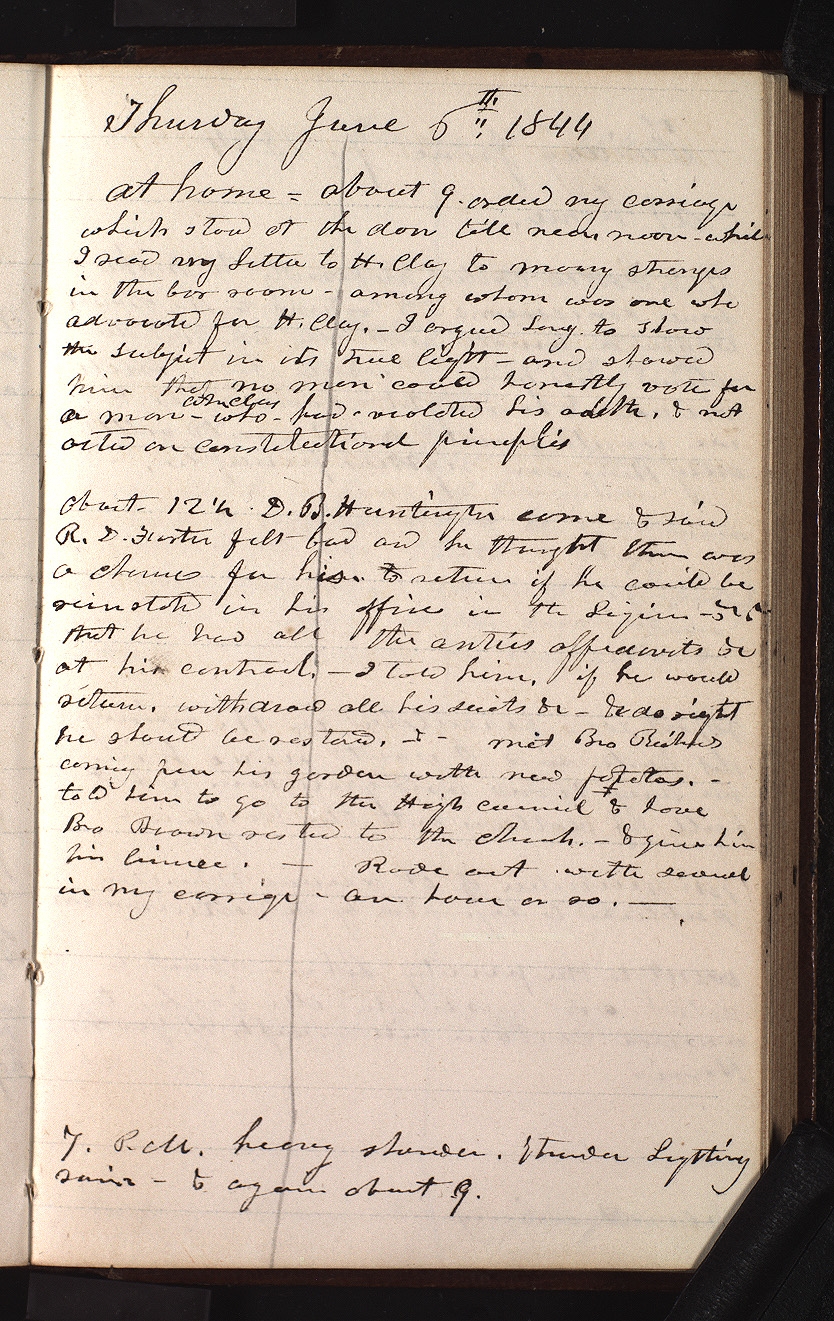 Thursday June 6th 1844
at home - about 9. orded my carriage
which stood at the door till near noon - while
I read my letter to H. Clay to many strangers
in the bar room - among whom was one who
advocated for H. Clay. - I argued long. to show
the subject in its true light - and showed
him that no man could honestly vote for
a man - like Clay who - had violated his oath. & not
acted on constitutional principles
about 12 h. D. B. Huntington came & said
R. D. Foster felt bad and he thought there was
a chance for him to return if he could be
reinstated in his office in the Legion - &c
that he had all the anties affidavits &c
at his control. - I told him. if he would
return. withdraw all his suits &c - & do right
he should be restored. - - met Bro Richards
coming from his garden with new potatoes. -
told him to go to the High council & have
Bro Brown restored to the church. - & give him
his license. - Rode out with several
in my carriage - an hour or so. -
7. P.M. heavy thunder. thunder Ligtning
rain - & again about 9.